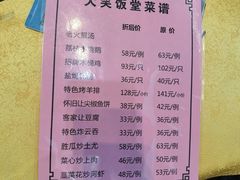 大笑饭堂菜谱
折后价 原价
老火靓汤
58元/例 63元/例
93元/只 102元/只
36元/只 40元/只
特色烤羊排 128元/例 141元/例
怀旧让尖椒鱼饼 38元/例 42元/例
客家让豆腐 33元/例 36元/例
特色炸云吞 33元/例 36元/例
胜瓜炒土尤 53元/例 58元/例
菜心炒上肉 48元/例 53元/例
韭菜花炒河虾 48元/例 53元/例